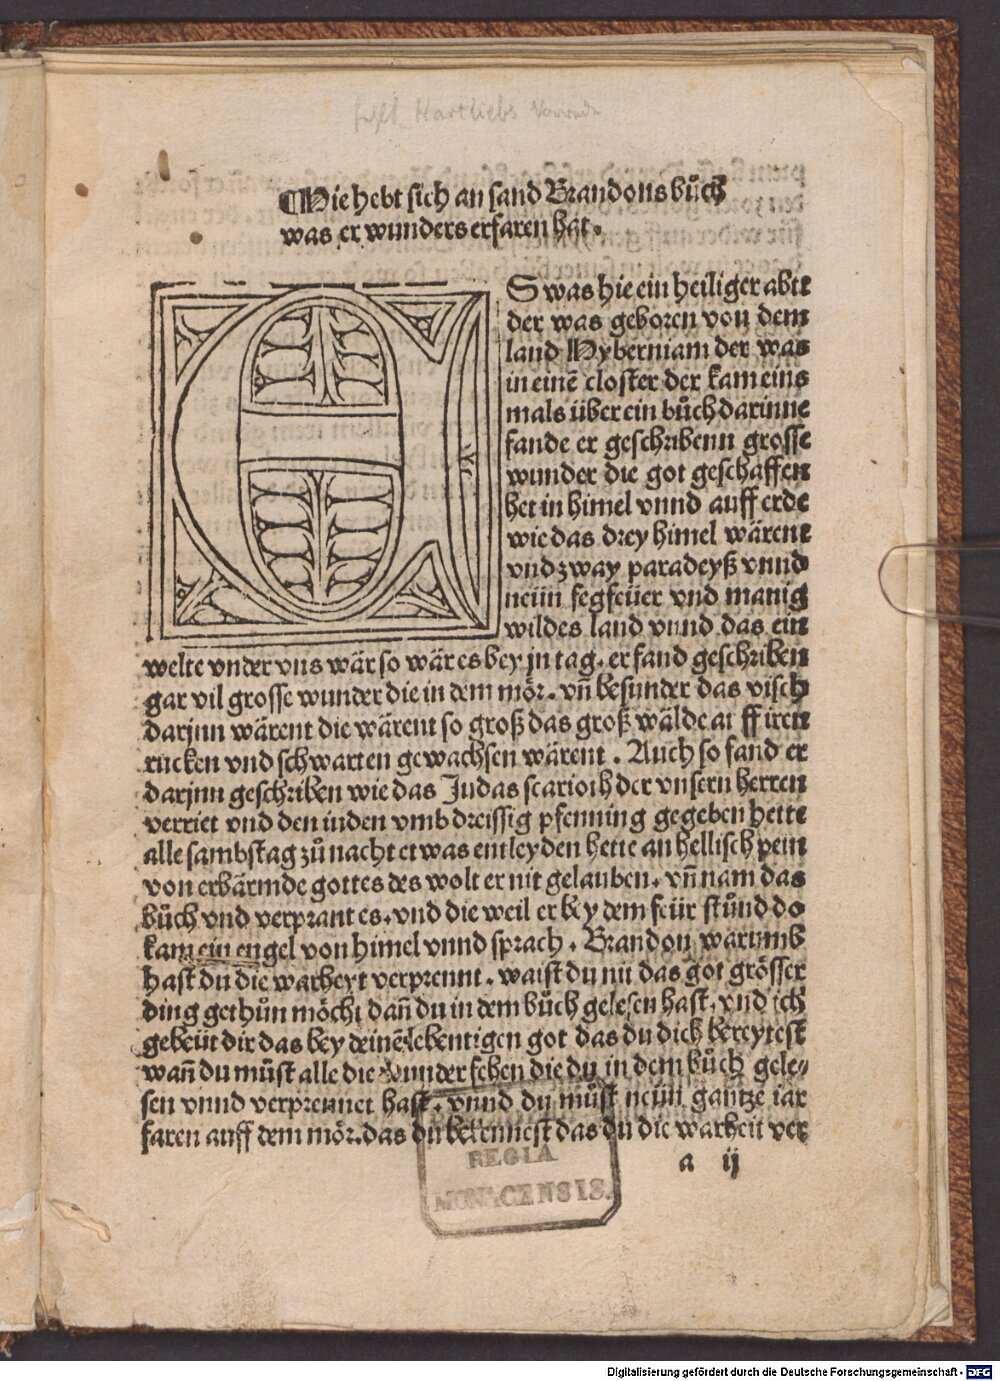 Hartliebs
¶Hie hebt sich an sand Brandons bůch
was er wunders erfaren hat.
ES was hie ein heiliger abtt
der was geboren von dem
land Hyberniam der was
in einē closter der kam eins
mals über ein bůch darinne
fande er geschribenn grosse
wunder die got geschaffen
het in himel vnnd auff erde
wie das drey himel wärent
vnd zway paradeyß vnnd
neün fegfeüer vnd manig
wildes land vnnd das ein
welte vnder vns wär so wär es bey jn tag. er fand geschriben
gar vil grosse wunder die in dem mör. vn̄ besunder das visch
darjnn wärent die wärent so groß das groß wälde auff iren
rucken vnd schwarten gewachsen wärent. Auch so fand er
darjnn geschriben wie das Judas scarioth der vnsern herren
verriet vnd den iuden vmb dreissig pfenning gegeben hette
alle sambstag zů nacht etwas entleyden hette an hellisch pein
von erbärmde gottes des wolt er nit gelauben. vn̄ nam das
bůch vnd verprant es. vnd die weil er bey dem feür stůnd do
kam ein engel von himel vnnd sprach. Brandon warumb
hast du die warheyt verprennt. waist du nit das got grösser
ding gethůn möcht dan̄ du in dem bůch gelesen hast. vnd ich
gebeüt dir das bey deinē lebentigen got das du dich bereytest
wan̄ du můst alle die wunder sehen die du in dem bůch gele⸗
sen vnnd verprennet hast. vnnd du můst neün gantze iar
faren auff dem mör. das du bekennest das du die warheit ver
a ij
REGIA
MONACENSIS.
Digitalisierung gefördert durch die Deutsche Forschungsgemeinschaft - DFG